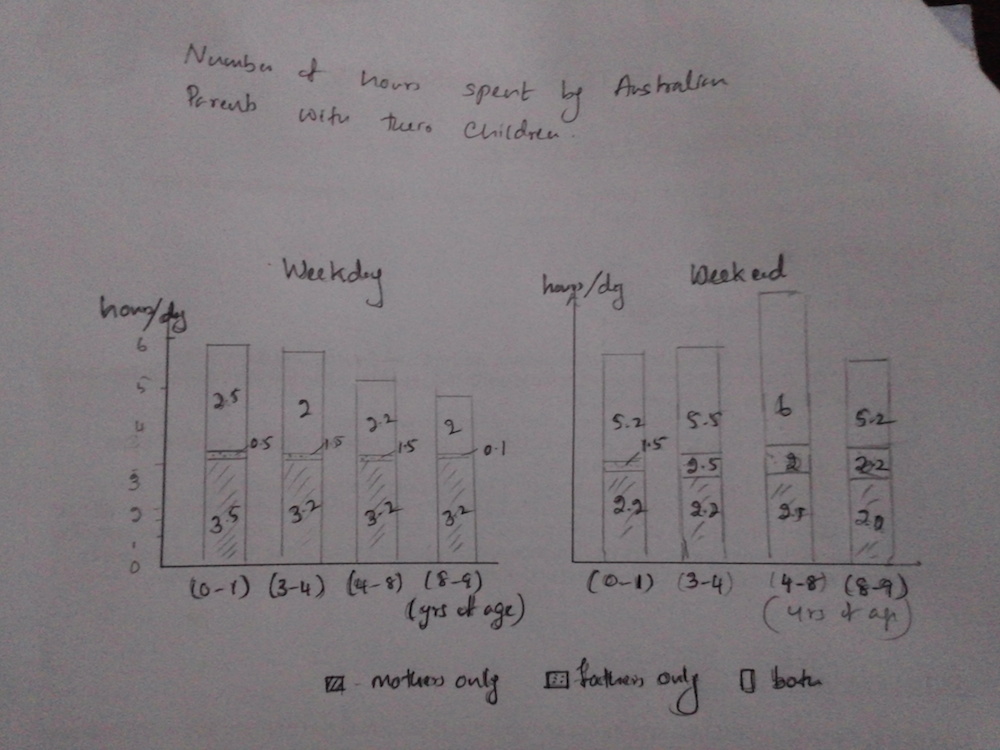 Number of hours spent by Australian
Parents with theirs Children.
Weekday
hours/day
6
5
4
3
2
1
0
2.5
0.5
3.5
2
1.5
3.2
2.2
1.5
3.2
2
0.1
3.2
(0-1) (3-4) (4-8) (8-9)
(yrs of age)
Weekend
hours/day
5.2
1.5
2.2
5.5
2.5
2.2
6
2
2.5
5.2
2.2
2.0
(0-1) (3-4) (4-8) (8-9)
(yrs of age)
mothers only
fathers only
both